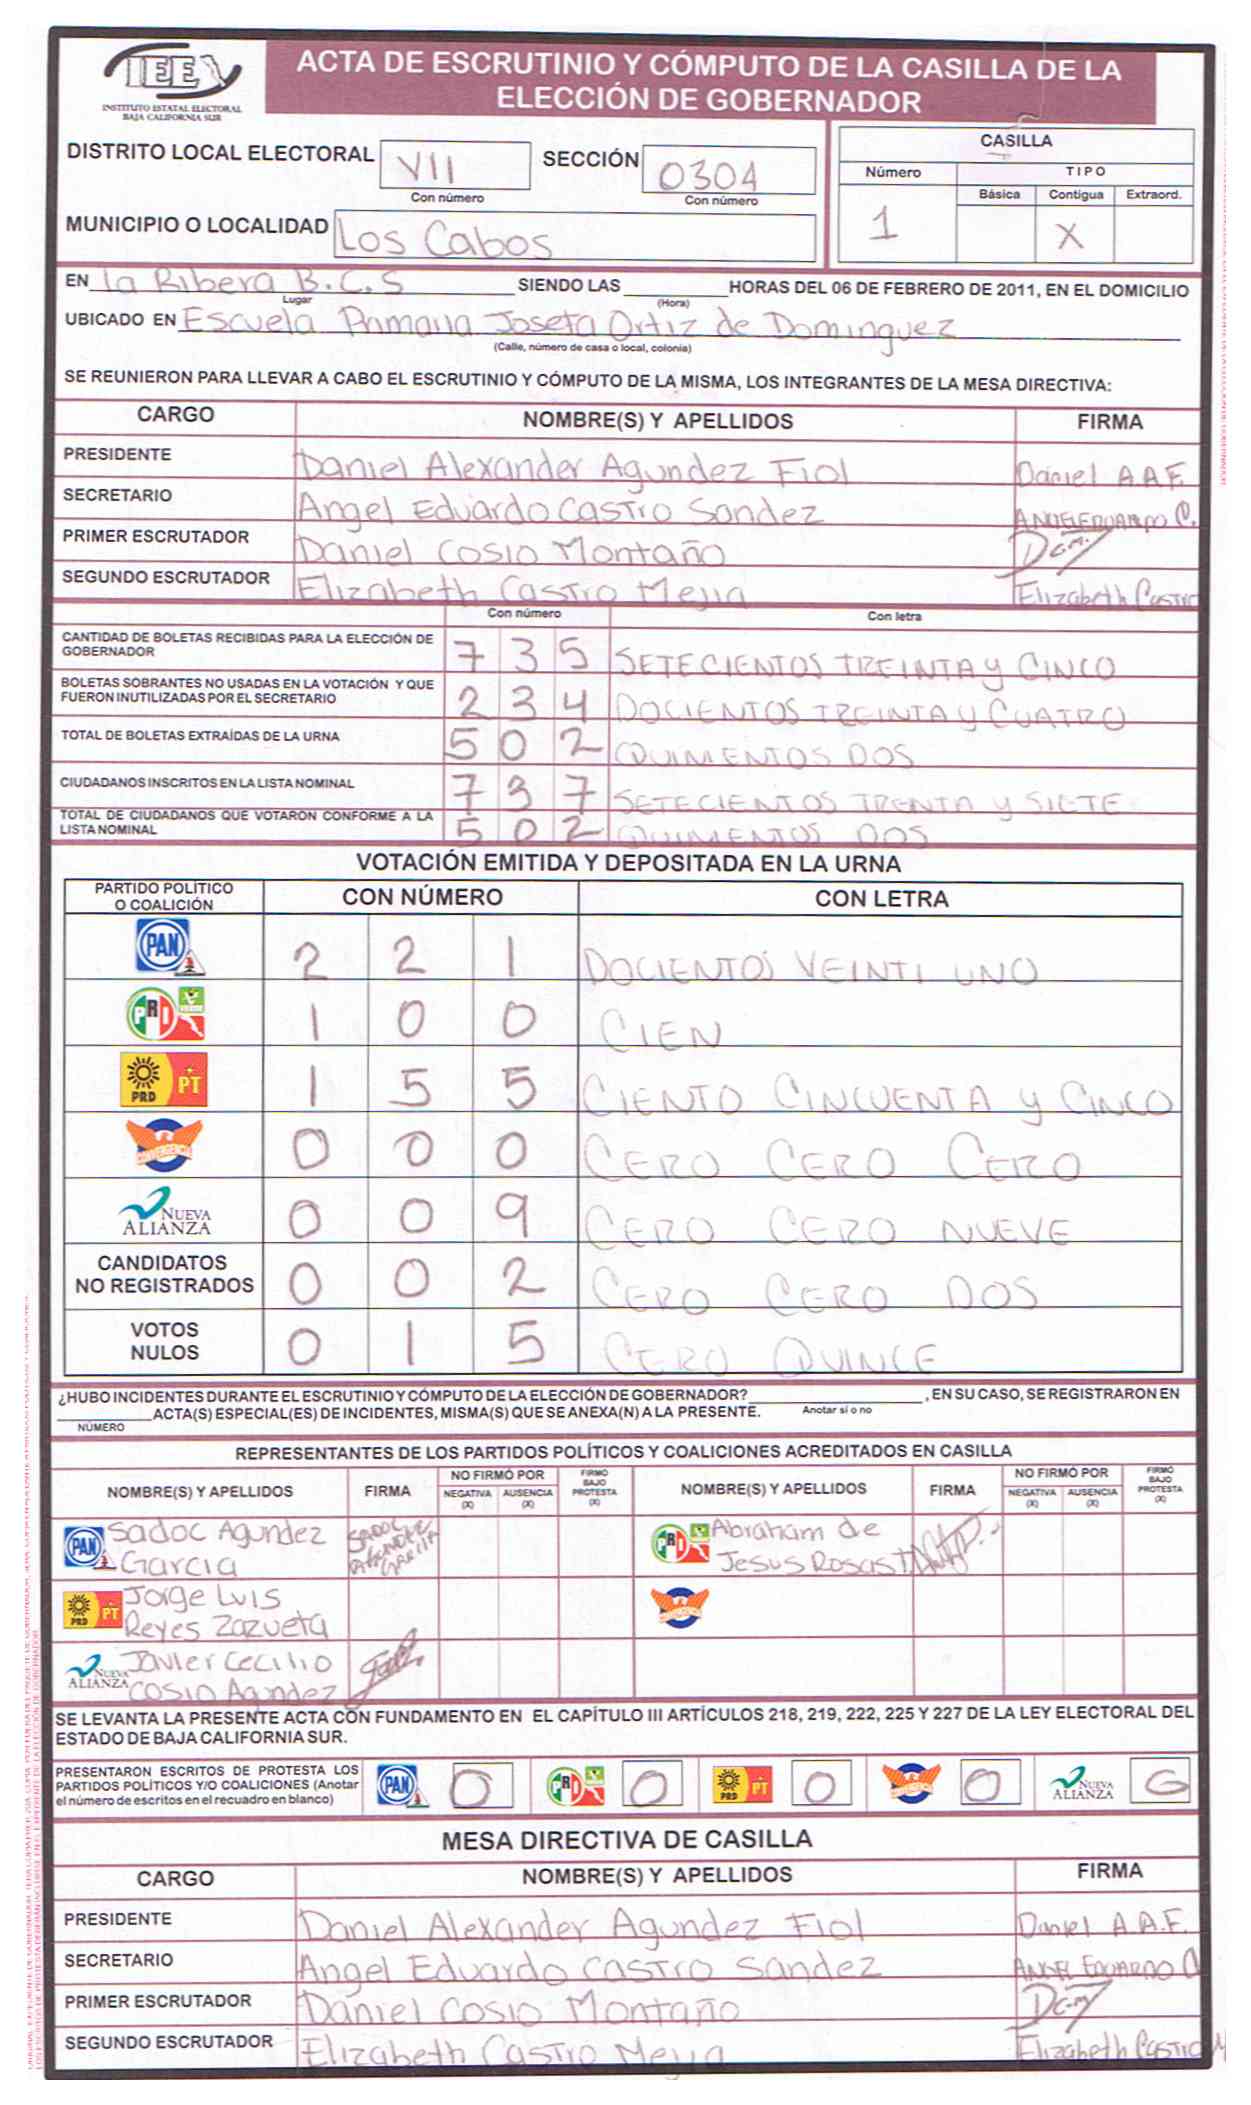 IEE
INSTITUTO ESTATAL ELECTORAL
BAJA CALIFORNIA SUR
ACTA DE ESCRUTINIO Y CÓMPUTO DE LA CASILLA DE LA
ELECCIÓN DE GOBERNADOR
DISTRITO LOCAL ELECTORAL VII SECCIÓN 0304
Con número Con número
MUNICIPIO O LOCALIDAD Los Cabos
CASILLA
Número TIPO
Básica Contigua Extraord.
1 X
EN la Ribera B.C.S SIENDO LAS HORAS DEL 06 DE FEBRERO DE 2011, EN EL DOMICILIO
Lugar (Hora)
UBICADO EN Escuela Primaria Josefa Ortiz de Dominguez
(Calle, número de casa o local, colonia)
SE REUNIERON PARA LLEVAR A CABO EL ESCRUTINIO Y CÓMPUTO DE LA MISMA, LOS INTEGRANTES DE LA MESA DIRECTIVA:
CARGO NOMBRE(S) Y APELLIDOS FIRMA
PRESIDENTE Daniel Alexander Agundez Fiol Daniel A.A.F.
SECRETARIO Angel Eduardo Castro Sandez ANGEL EDUARDO C.
PRIMER ESCRUTADOR Daniel Cosio Montaño D C.M.
SEGUNDO ESCRUTADOR Elizabeth Castro Mejia Elizabeth Castro
Con número Con letra
CANTIDAD DE BOLETAS RECIBIDAS PARA LA ELECCIÓN DE
GOBERNADOR 7 3 5 SETECIENTOS TREINTA Y CINCO
BOLETAS SOBRANTES NO USADAS EN LA VOTACIÓN Y QUE
FUERON INUTILIZADAS POR EL SECRETARIO 2 3 4 DOCIENTOS TREINTA Y CUATRO
TOTAL DE BOLETAS EXTRAÍDAS DE LA URNA 5 0 2 QUINIENTOS DOS
CIUDADANOS INSCRITOS EN LA LISTA NOMINAL 7 3 7 SETECIENTOS TRENTA Y SIETE
TOTAL DE CIUDADANOS QUE VOTARON CONFORME A LA
LISTA NOMINAL 5 0 2 QUINIENTOS DOS
VOTACIÓN EMITIDA Y DEPOSITADA EN LA URNA
PARTIDO POLÍTICO
O COALICIÓN CON NÚMERO CON LETRA
PAN 2 2 1 DOCIENTOS VEINTI UNO
PRI VERDE 1 0 0 CIEN
PRD PT 1 5 5 CIENTO CINCUENTA Y CINCO
CONVERGENCIA 0 0 0 CERO CERO CERO
NUEVA ALIANZA 0 0 9 CERO CERO NUEVE
CANDIDATOS
NO REGISTRADOS 0 0 2 CERO CERO DOS
VOTOS
NULOS 0 1 5 CERO QUINCE
¿HUBO INCIDENTES DURANTE EL ESCRUTINIO Y CÓMPUTO DE LA ELECCIÓN DE GOBERNADOR? , EN SU CASO, SE REGISTRARON EN
Anotar sí o no
ACTA(S) ESPECIAL(ES) DE INCIDENTES, MISMA(S) QUE SE ANEXA(N) A LA PRESENTE.
NÚMERO
REPRESENTANTES DE LOS PARTIDOS POLÍTICOS Y COALICIONES ACREDITADOS EN CASILLA
NOMBRE(S) Y APELLIDOS FIRMA NO FIRMÓ POR NEGATIVA (X) AUSENCIA (X) FIRMÓ BAJO PROTESTA (X) NOMBRE(S) Y APELLIDOS FIRMA NO FIRMÓ POR NEGATIVA (X) AUSENCIA (X) FIRMÓ BAJO PROTESTA (X)
PAN Sadoc Agundez SADOC PRI Abraham de
Garcia AGUNDEZ GARCIA Jesus Rosas
PRD PT Jorge Luis
Reyes Zazueta
NUEVA ALIANZA Javier Cecilio
Cosio Agundez
SE LEVANTA LA PRESENTE ACTA CON FUNDAMENTO EN EL CAPÍTULO III ARTÍCULOS 218, 219, 222, 225 Y 227 DE LA LEY ELECTORAL DEL
ESTADO DE BAJA CALIFORNIA SUR.
PRESENTARON ESCRITOS DE PROTESTA LOS
PARTIDOS POLÍTICOS Y/O COALICIONES (Anotar
el número de escritos en el recuadro en blanco)
PAN 0 PRI 0 PRD PT 0 CONVERGENCIA 0 NUEVA ALIANZA 0
MESA DIRECTIVA DE CASILLA
CARGO NOMBRE(S) Y APELLIDOS FIRMA
PRESIDENTE Daniel Alexander Agundez Fiol Daniel A.A.F.
SECRETARIO Angel Eduardo Castro Sandez ANGEL EDUARDO C
PRIMER ESCRUTADOR Daniel Cosio Montaño D C.M
SEGUNDO ESCRUTADOR Elizabeth Castro Mejia Elizabeth Castro M